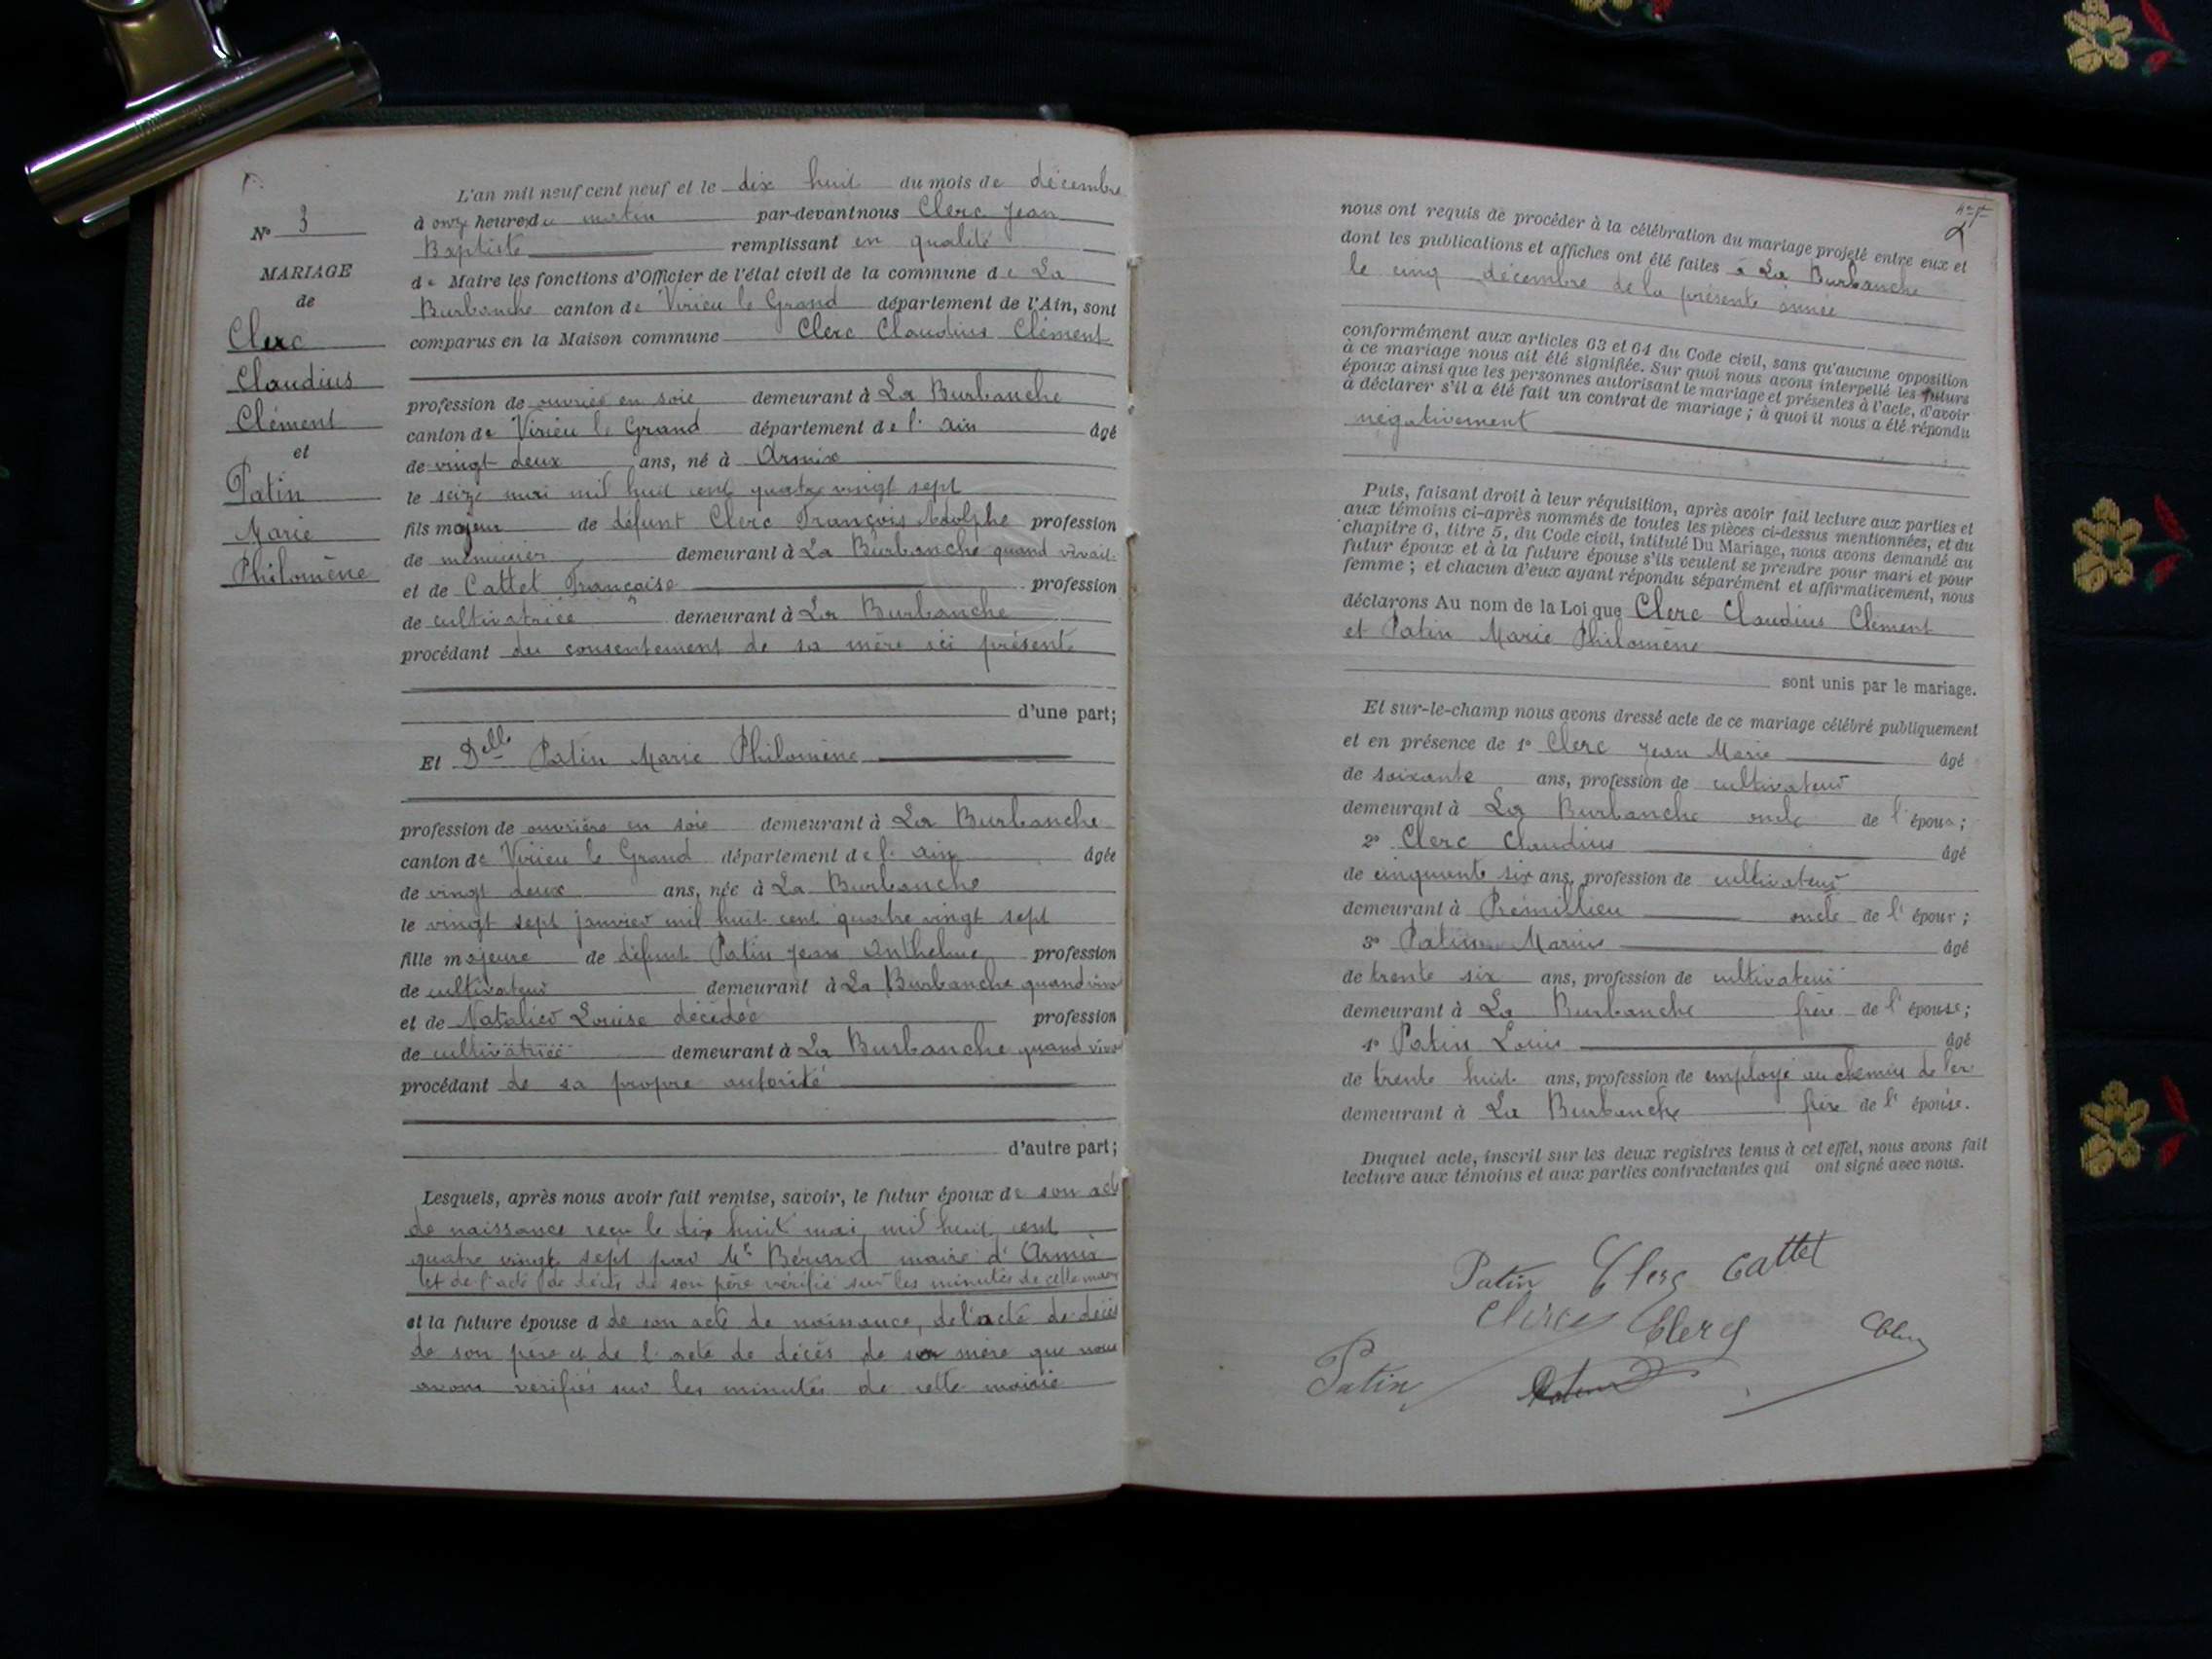 N° 3
MARIAGE
de
Clerc
Claudius
Clément
et
Patin
Marie
Philomène
L'an mil neuf cent neuf et le dix huit du mois de décembre
à onze heures du matin par-devant nous Clerc Jean
Baptiste remplissant en qualité
de Maire les fonctions d'Officier de l'état civil de la commune de La
Burbanche canton de Virieu le Grand département de l'Ain, sont
comparus en la Maison commune Clerc Claudius Clément
profession de ouvrier en soie demeurant à La Burbanche
canton de Virieu le Grand département de l'Ain âgé
de vingt deux ans, né à Armix
le seize mai mil huit cent quatre vingt sept
fils majeur de défunt Clerc François Adolphe profession
de menuisier demeurant à La Burbanche quand vivait
et de Cattet Françoise profession
de cultivatrice demeurant à La Burbanche
procédant du consentement de sa mère ici présente
d'une part;
Et Delle Patin Marie Philomène
profession de ouvrière en soie demeurant à La Burbanche
canton de Virieu le Grand département de l'Ain âgée
de vingt deux ans, née à La Burbanche
le vingt sept janvier mil huit cent quatre vingt sept
fille majeure de défunt Patin Jean Anthelme profession
de cultivateur demeurant à La Burbanche quand viva
et de Natalier Louise décédée profession
de cultivatrice demeurant à La Burbanche quand viva
procédant de sa propre autorité
d'autre part;
Lesquels, après nous avoir fait remise, savoir, le futur époux de son acte
de naissance reçu le dix huit mai mil huit cent
quatre vingt sept par Mr Bérard maire d'Armix
et de l'acte de décès de son père vérifié sur les minutes de cette mairie
et la future épouse d de son acte de naissance, de l'acte de décès
de son père et de l'acte de décès de sa mère que nous
avons vérifiés sur les minutes de cette mairie
nous ont requis de procéder à la célébration du mariage projeté entre eux et
dont les publications et affiches ont été faites à La Burbanche
le cinq décembre de la présente année
conformément aux articles 63 et 64 du Code civil, sans qu'aucune opposition
à ce mariage nous ait été signifiée. Sur quoi nous avons interpellé les futurs
époux ainsi que les personnes autorisant le mariage et présentes à l'acte, d'avoir
à déclarer s'il a été fait un contrat de mariage; à quoi il nous a été répondu
négativement
Puis, faisant droit à leur réquisition, après avoir fait lecture aux parties et
aux témoins ci-après nommés de toutes les pièces ci-dessus mentionnées, et du
chapitre 6, titre 5, du Code civil, intitulé Du Mariage, nous avons demandé au
futur époux et à la future épouse s'ils veulent se prendre pour mari et pour
femme; et chacun d'eux ayant répondu séparément et affirmativement, nous
déclarons Au nom de la Loi que Clerc Claudius Clément
et Patin Marie Philomène
sont unis par le mariage.
Et sur-le-champ nous avons dressé acte de ce mariage célébré publiquement
et en présence de 1° Clerc Jean Marie âgé
de soixante ans, profession de cultivateur
demeurant à La Burbanche oncle de l'époux;
2° Clerc Claudius âgé
de cinquante six ans, profession de cultivateur
demeurant à Prémillieu oncle de l'époux;
3° Patin Marius âgé
de trente six ans, profession de cultivateur
demeurant à La Burbanche frère de l'épouse;
4° Patin Louis âgé
de trente huit ans, profession de employé au chemin de fer
demeurant à La Burbanche frère de l'épouse.
Duquel acte, inscrit sur les deux registres tenus à cet effet, nous avons fait
lecture aux témoins et aux parties contractantes qui ont signé avec nous.
Patin Clerc Cattet
Clerc Clerc
Patin